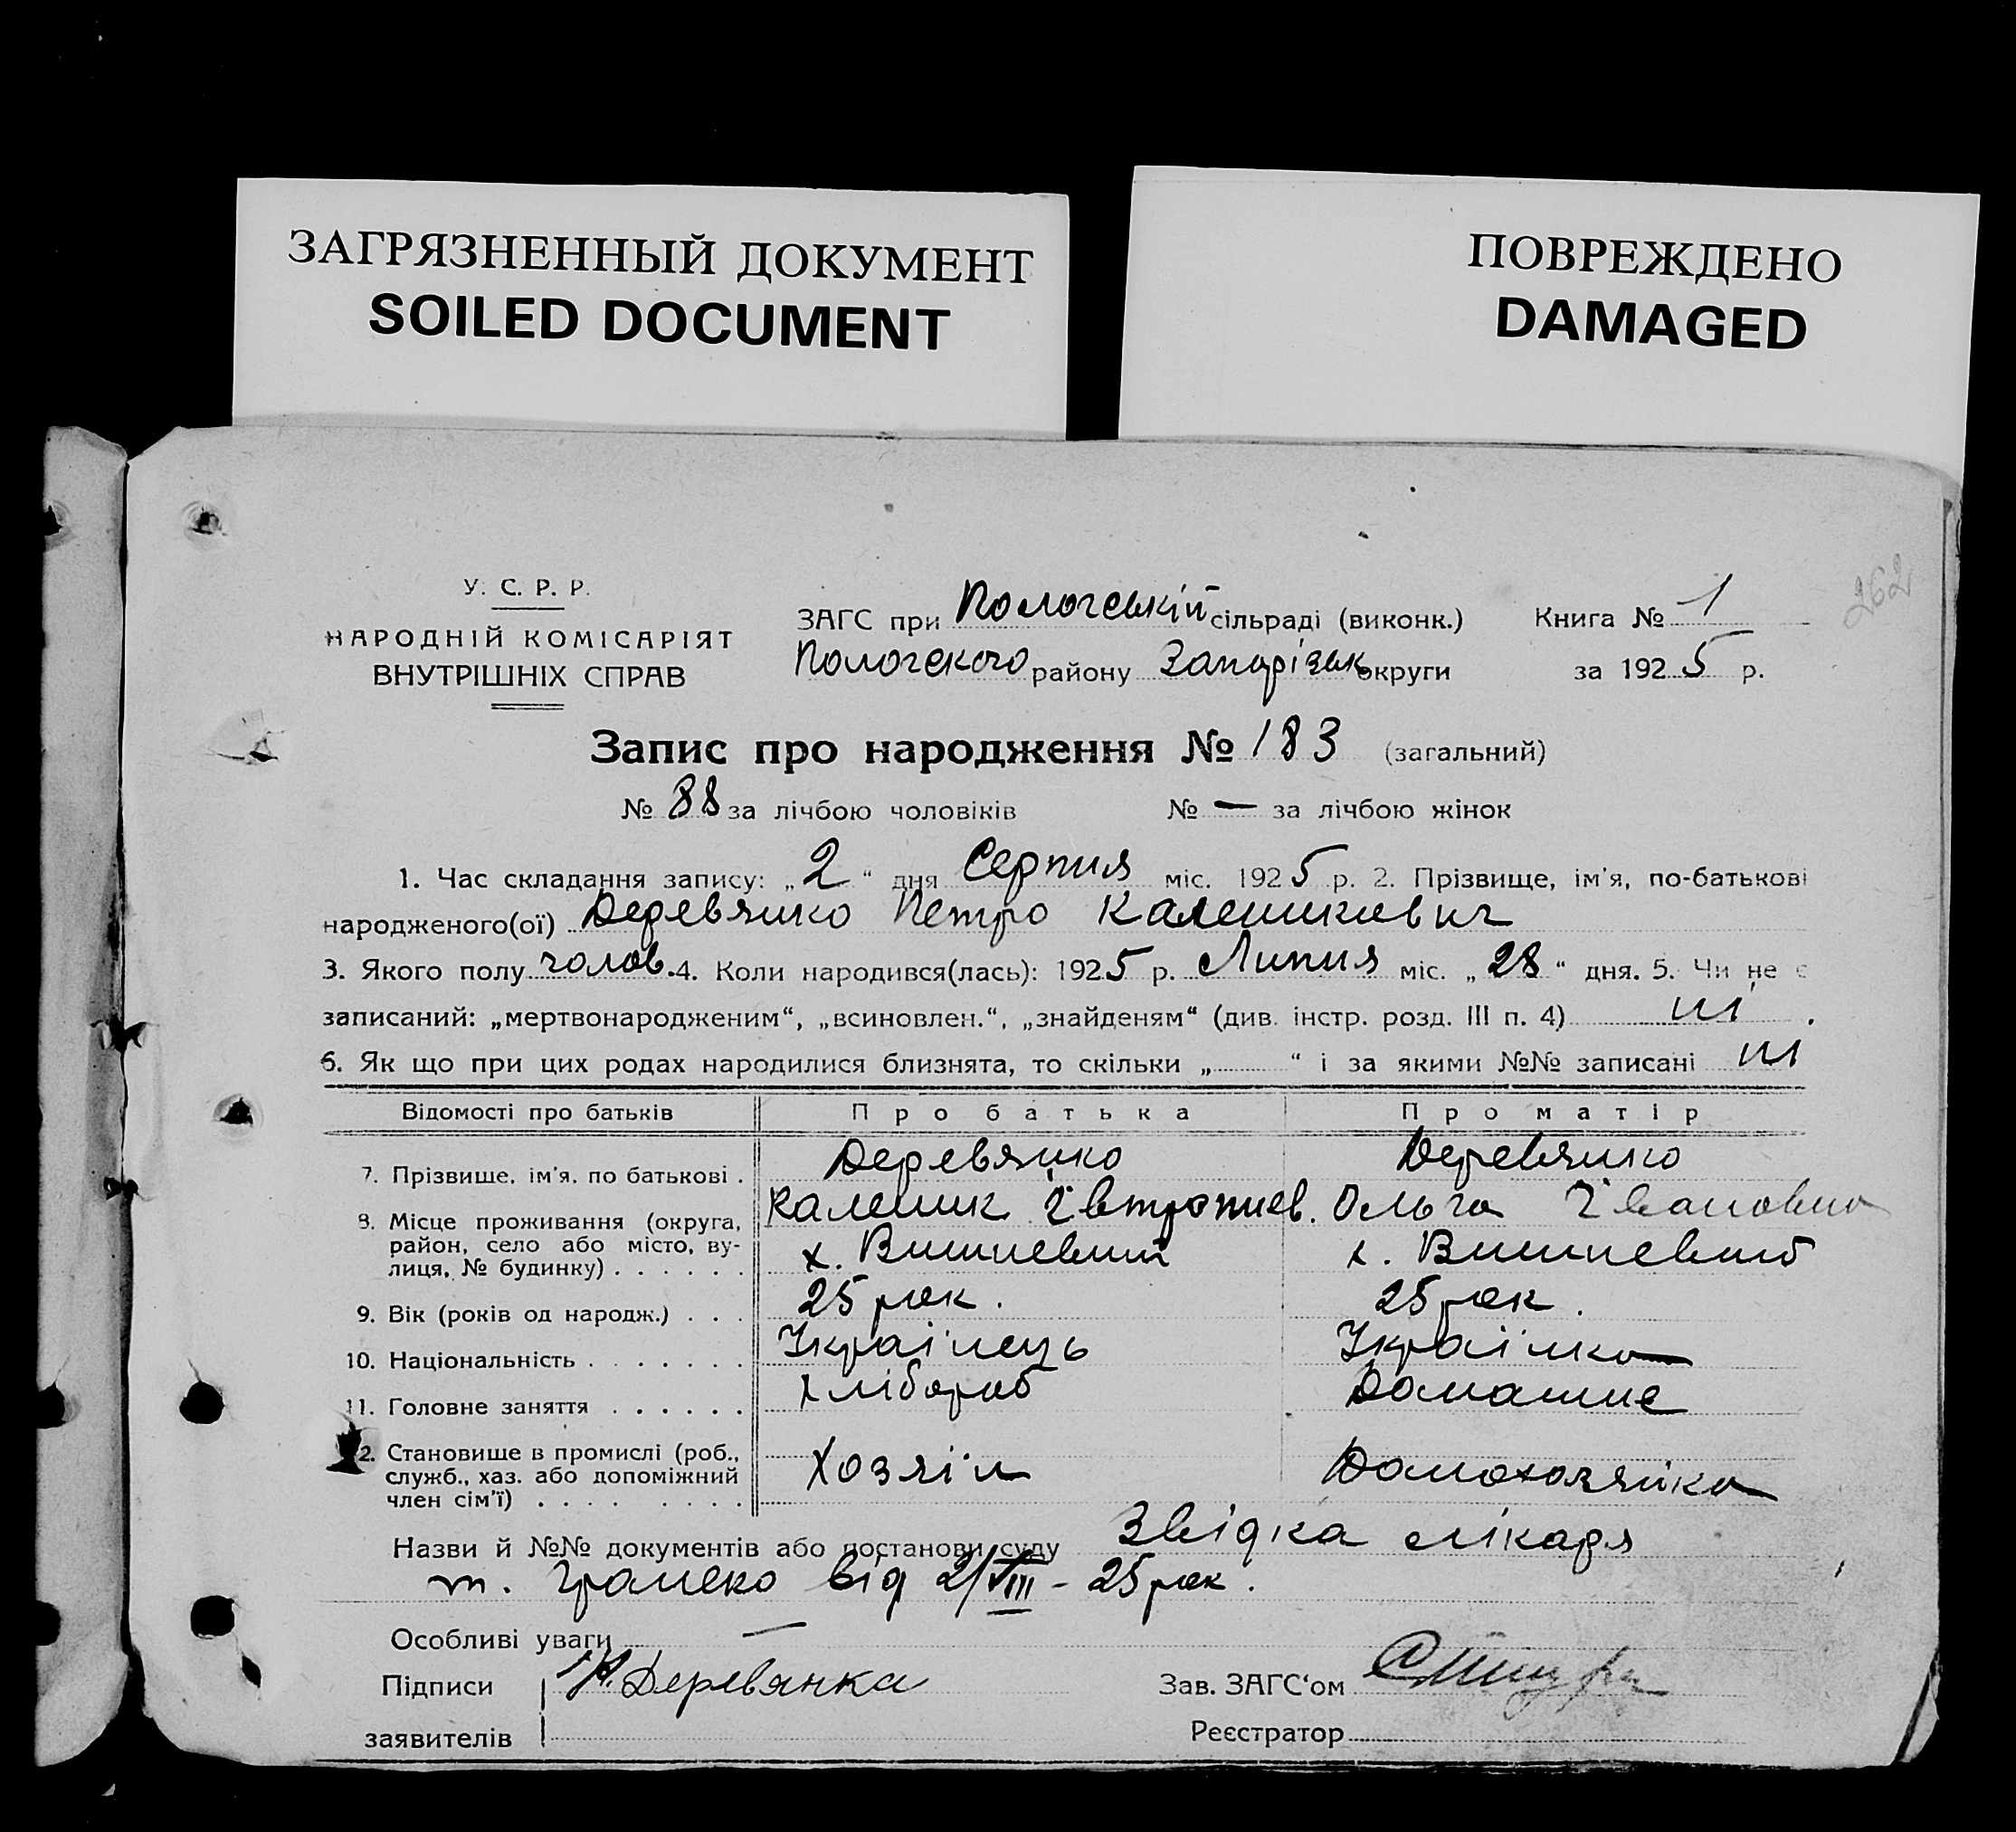 ЗАГРЯЗНЕННЫЙ ДОКУМЕНТ
SOILED DOCUMENT
ПОВРЕЖДЕНО
DAMAGED
262
У. С. Р. Р.
НАРОДНІЙ КОМІСАРІЯТ
ВНУТРІШНІХ СПРАВ
ЗАГС при Пологській сільраді (виконк.) Книга № 1
Пологского району Запорізьк округи за 1925 р.
Запис про народження № 183 (загальний)
№ 88 за лічбою чоловіків № — за лічбою жінок
1. Час складання запису: „2“ дня Серпня міс. 1925 р. 2. Прізвище, ім'я, по-батькові
народженого(ої) Деревянко Петро Каленикович
3. Якого полу чолов. 4. Коли народився(лась): 1925 р. Липня міс. „28“ дня. 5. Чи не є
записаний: „мертвонародженим“, „всиновлен.“, „знайденям“ (див. інстр. розд. III п. 4) ні.
6. Як що при цих родах народилися близнята, то скільки „ “ і за якими №№ записані ні
Відомості про батьків Про батька Про матір
7. Прізвище, ім'я, по батькові . Деревянко Деревянко
Каленик Івтропиев. Ольга Івановна
8. Місце проживання (округа, район, село або місто, вулиця, № будинку) . . . . . . х. Вишневий х. Вишневий
9. Вік (років од народж.) . . . 25 рок. 25 рок.
10. Національність . . . . . . . Українець Українка
11. Головне заняття . . . . . . хлібороб Домашне
12. Становище в промислі (роб., служб., хаз. або допоміжний член сім'ї) . . . . . . . . Хозяїн Домохозяйка
Назви й №№ документів або постанови суду Звідка лікаря
т. Грамеко від 2/VIII - 25 рок.
Особливі уваги —
Підписи К. Деревянка Зав. ЗАГС'ом
заявителів Реєстратор